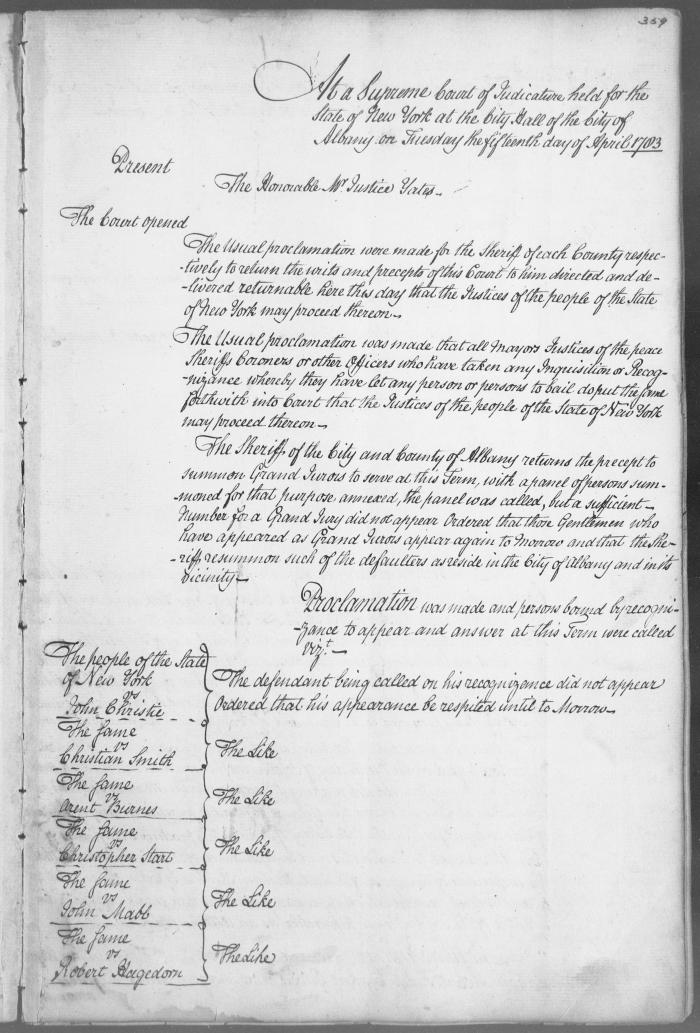 359
At a Supreme Court of Judicature held for the
State of New York at the City Hall of the City of
Albany on Tuesday the fifteenth day of April 1783
Present
The Honorable Mr. Justice Yates.
The Court opened
The Usual proclamation were made for the Sheriff of each County respec-
-tively to return the writs and precepts of this Court to him directed and de-
-livered returnable here this day that the Justices of the people of the State
of New York may proceed thereon.
The Usual proclamation was made that all Mayors Justices of the peace
Sheriffs Coroners or other Officers who have taken any Inquisition or Recog-
-nizance whereby they have let any person or persons to bail do put the same
forthwith into Court that the Justices of the people of the State of New York
may proceed thereon
The Sheriff of the City and County of Albany returns the precept to
summon Grand Jurors to serve at this Term, with a panel of persons sum-
-moned for that purpose annexed, the panel was called, but a sufficient
Number for a Grand Jury did not appear Ordered that those Gentlemen who
have appeared as Grand Jurors appear again to Morrow and that the She-
-riff resummon such of the defaulters as reside in the City of Albany and in its
vicinity
Proclamation was made and persons bound by recogni-
-zance to appear and answer at this Term were called
Vizt.
The people of the State
of New York
vs
John Christie
The defendant being called on his recognizance did not appear
Ordered that his appearance be respited until to Morrow
The same
vs
Christian Smith
The Like
The same
vs
Arent Burnes
The Like
The same
vs
Christopher Start
The Like
The same
vs
John Mabb
The Like
The same
vs
Robert Hagedorn
The Like